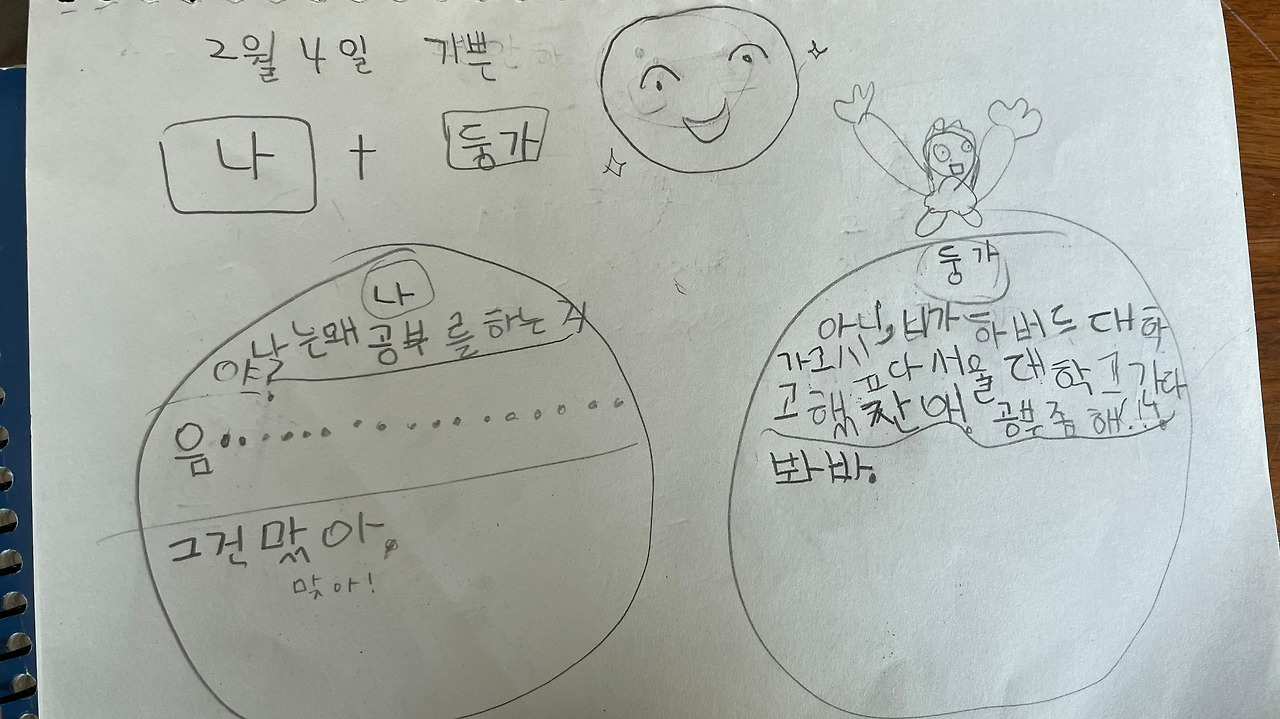 2월 4일 기쁜
나 + 둥가
나
나는왜 공부를 하는 거
야?
음.................
그건 맜아.
맞아!
둥가
아니, 니가 하버드 대학
가고시 프다 서울 대학고 간다
고 했잖아! 공부 좀 해!!
봐바.